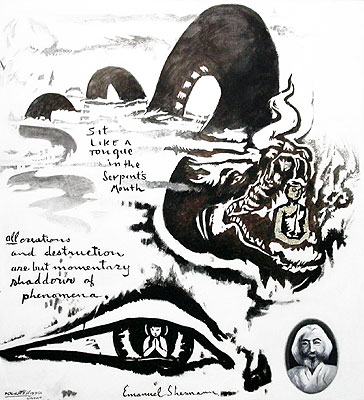 Sit
LIKE A
TONGUE
in the
Serpent's
Mouth
all creations
and destruction
are but momentary
shaddows of
phenomena.
Emanuel Sherman